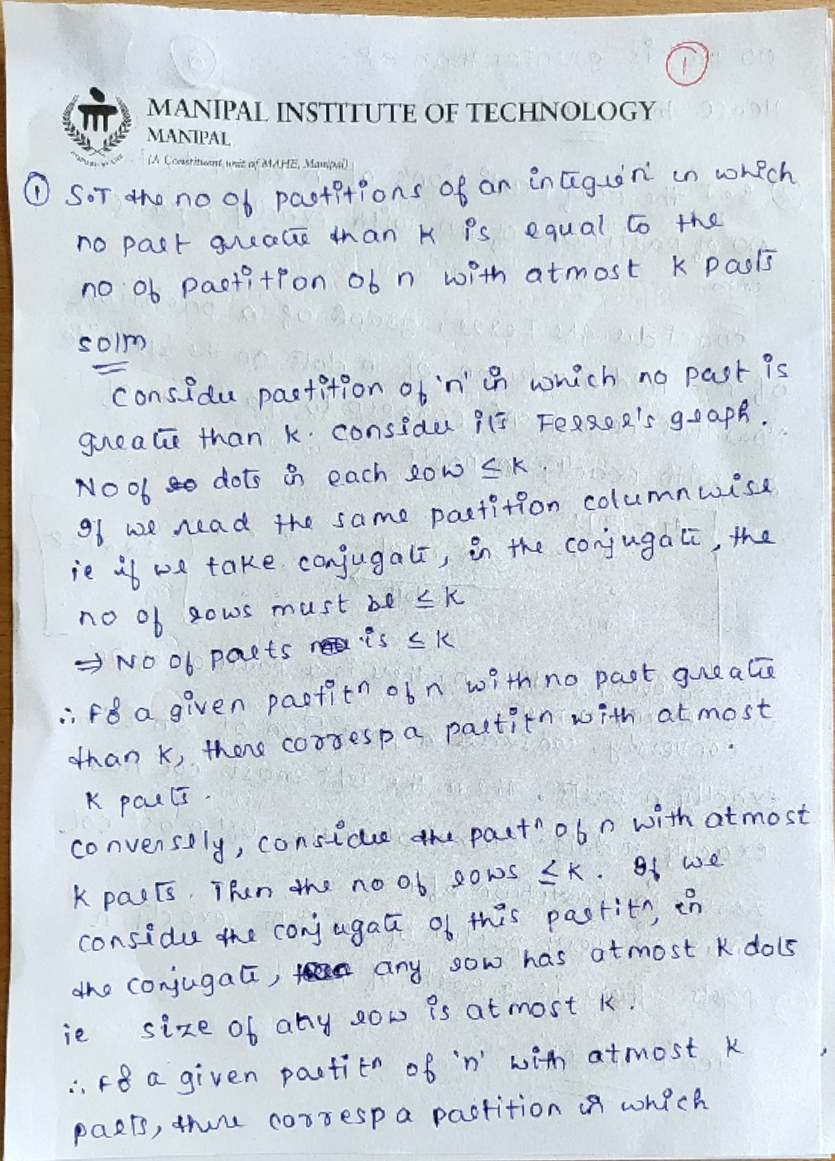 1
MANIPAL INSTITUTE OF TECHNOLOGY
MANIPAL
(A Constituent unit of MAHE, Manipal)
① S.T the no of partitions of an integer 'n' in which
no part greater than K is equal to the
no of partition of n with atmost K parts
soln
Consider partition of 'n' in which no part is
greater than k. consider its Ferrer's graph.
No of dots in each row ≤ K.
If we read the same partition columnwise
ie if we take conjugate, in the conjugate, the
no of rows must be ≤ K
⇒ No of parts is ≤ K
∴ For a given partitn of n with no part greater
than K, there corresp a partitn with atmost
K parts.
conversely, consider the partn of n with atmost
K parts. Then the no of rows ≤ K. If we
consider the conjugate of this partitn, in
the conjugate, any row has atmost K dots
ie size of any row is atmost K.
∴ For a given partitn of 'n' with atmost K
parts, there corresp a partition in which